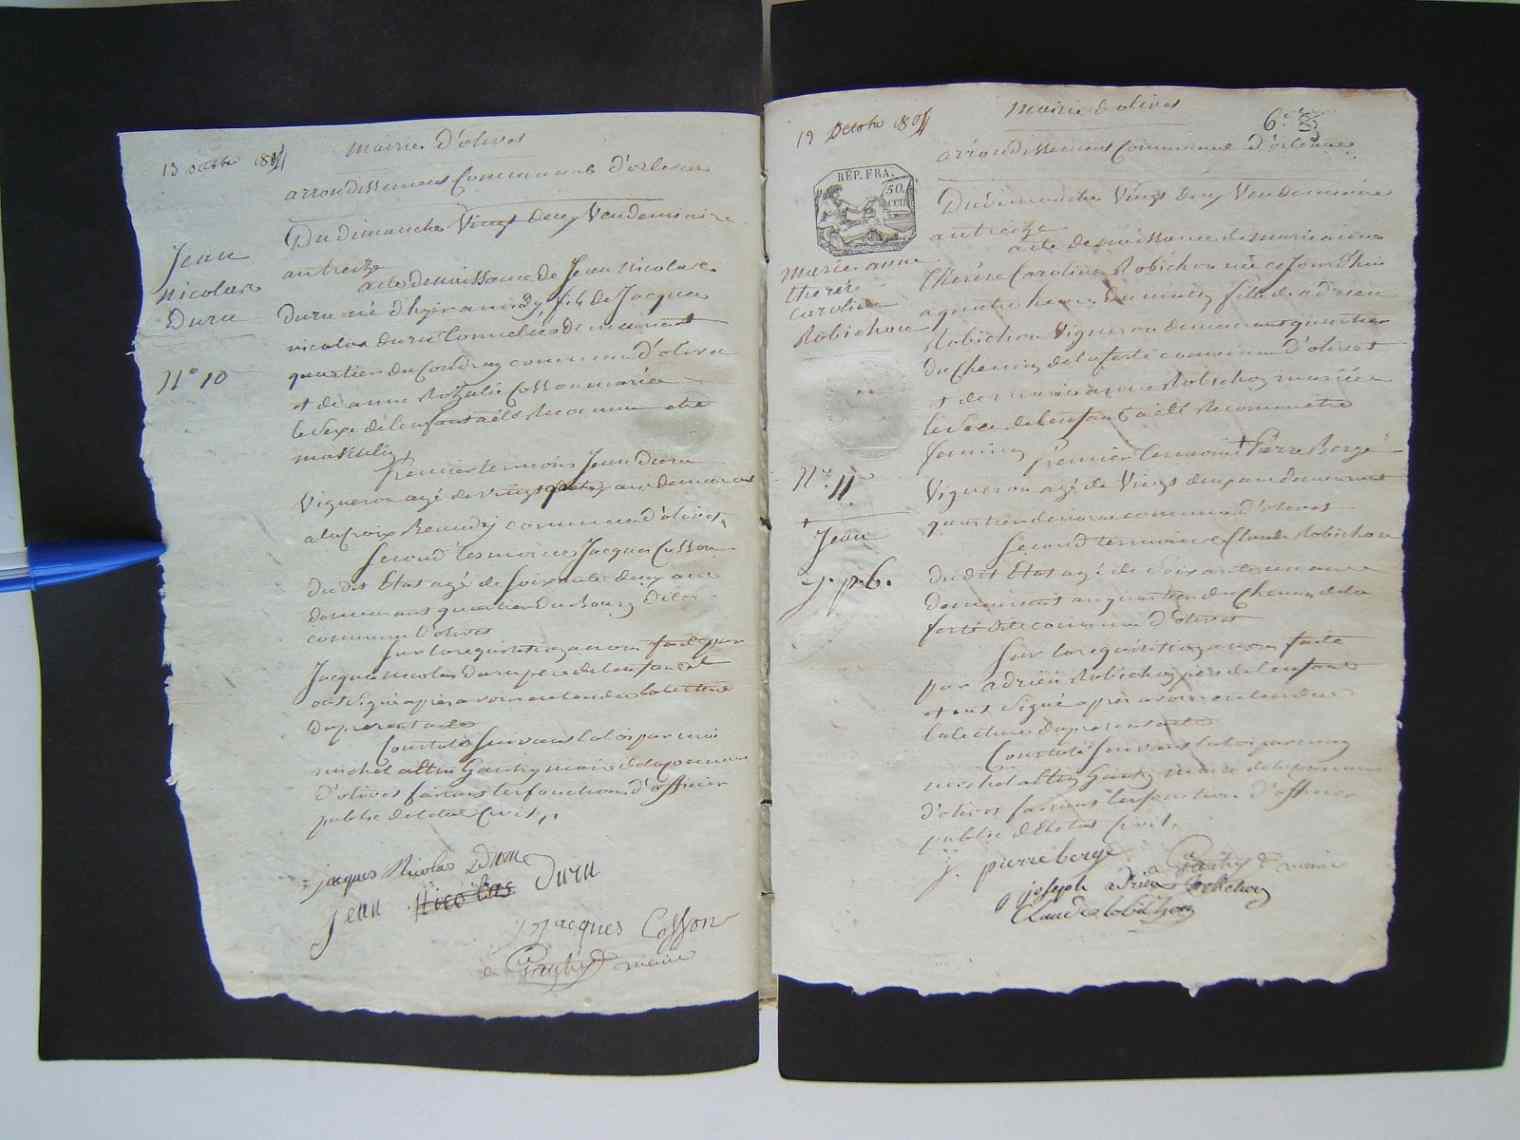 13 octobre 1804
Mairie d'olivet
arrondissement Communal d'orleans
Du dimanche Vingt deux Vendemiaire
an treize
acte de naissance de Jean Nicolas
Duru né d'hyer a midy fils de Jacques
nicolas duru tonnelier demeurant
quartier du Coudray commune d'olivet
et de anne Rozalie Cosson mariée
le sexe de l'enfant a été Reconnu etre
masculin
Premier temoin Jean Duru
Vigneron agé de vingt quatre ans demeurant
a la Croix commune d'olivet
Second temoin Jacques Cosson
du dit Etat agé de soixante deux ans
demeurant quartier du Bourg dite
commune d'olivet
Sur la requisition a nous faite par
Jacques nicolas duru pere de l'enfant et
ont signé après avoir entendu la lecture
du present acte
Constaté suivant la loi par moi
michel altin Gautry maire de la commune
d'olivet faisant les fonctions d'officier
public de l'etat Civil
Jean
Nicolas
Duru
N° 10
jacques Nicolas Duru
Jean Nicolas Duru
Jacques Cosson
Gautry maire
19 Octobre 1804
Mairie d'olivet
6e
arrondissement Communal d'orleans
REP. FRA.
50.
CEN.
Du dimanche Vingt deux Vendemiaire
an treize
acte de naissance de marie anne
therèse Caroline Robichon née ce jourd'hui
a quatre heures du matin fille de adrien
Robichon Vigneron demeurant quartier
du Chemin de la ferté commune d'olivet
et de marie anne Robichon mariée
le sexe de l'enfant a été Reconnu etre
feminin
Premier temoin + Pierre Bergé
Vigneron agé de Vingt deux ans demeurant
quartier commune d'olivet
Second temoin Claude Robichon
du dit Etat agé de soixante un ans
demeurant au quartier du Chemin de la
ferté dite commune d'olivet
Sur la requisition a nous faite
par adrien Robichon pere de l'enfant
et ont signé après avoir entendu
la lecture du present acte
Constaté suivant la loi par moy
michel altin Gautry maire de la commune
d'olivet faisant les fonctions d'officier
public de l'etat Civil
marie anne
therèse
caroline
Robichon
N° 11
+ Jean
j. p. b.
j. pierre bergé
Gautry maire
joseph adrien Robichon
Claude Robichon